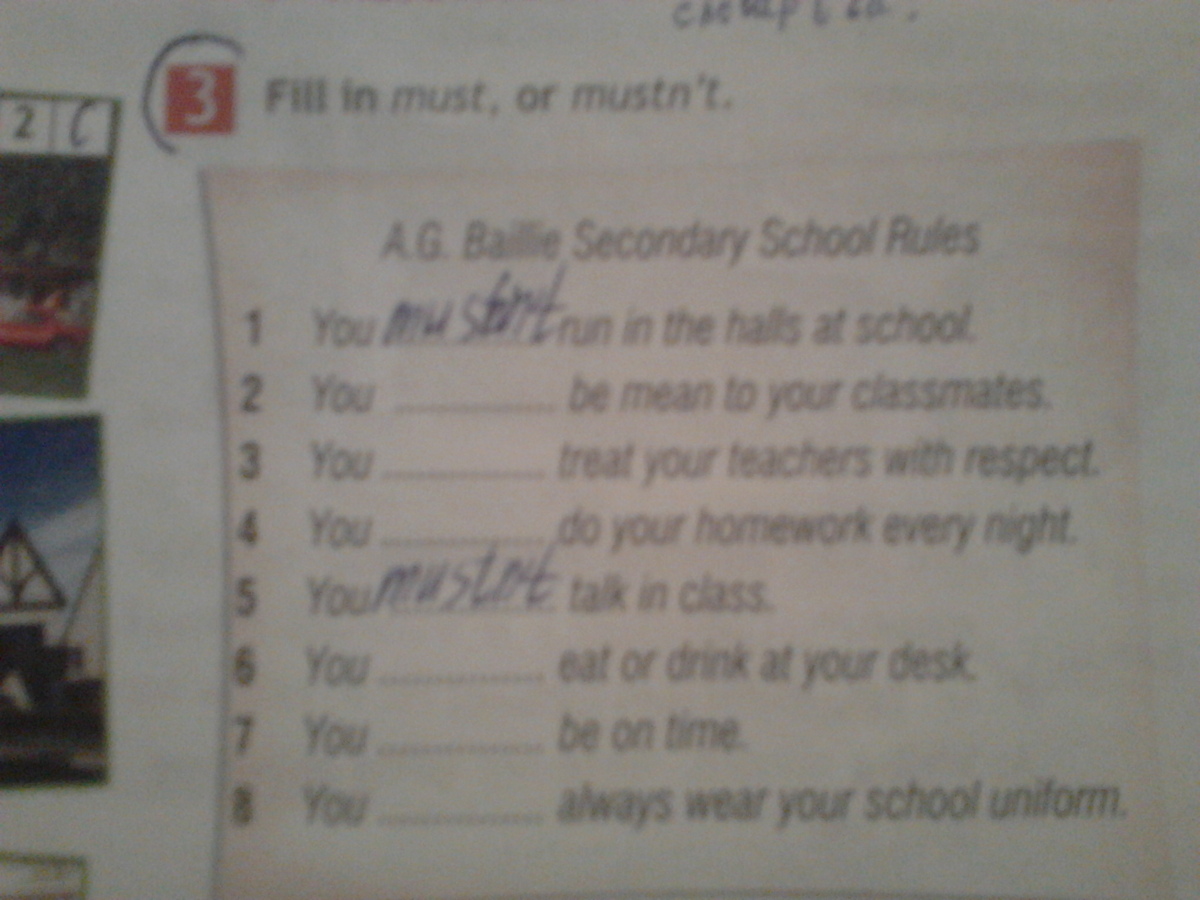 2 C
3 Fill in must, or mustn't.
A.G. Baillie Secondary School Rules
1 You mustn't run in the halls at school.
2 You ................ be mean to your classmates.
3 You ................ treat your teachers with respect.
4 You ................ do your homework every night.
5 You mustnt talk in class.
6 You ................ eat or drink at your desk.
7 You ................ be on time.
8 You ................ always wear your school uniform.